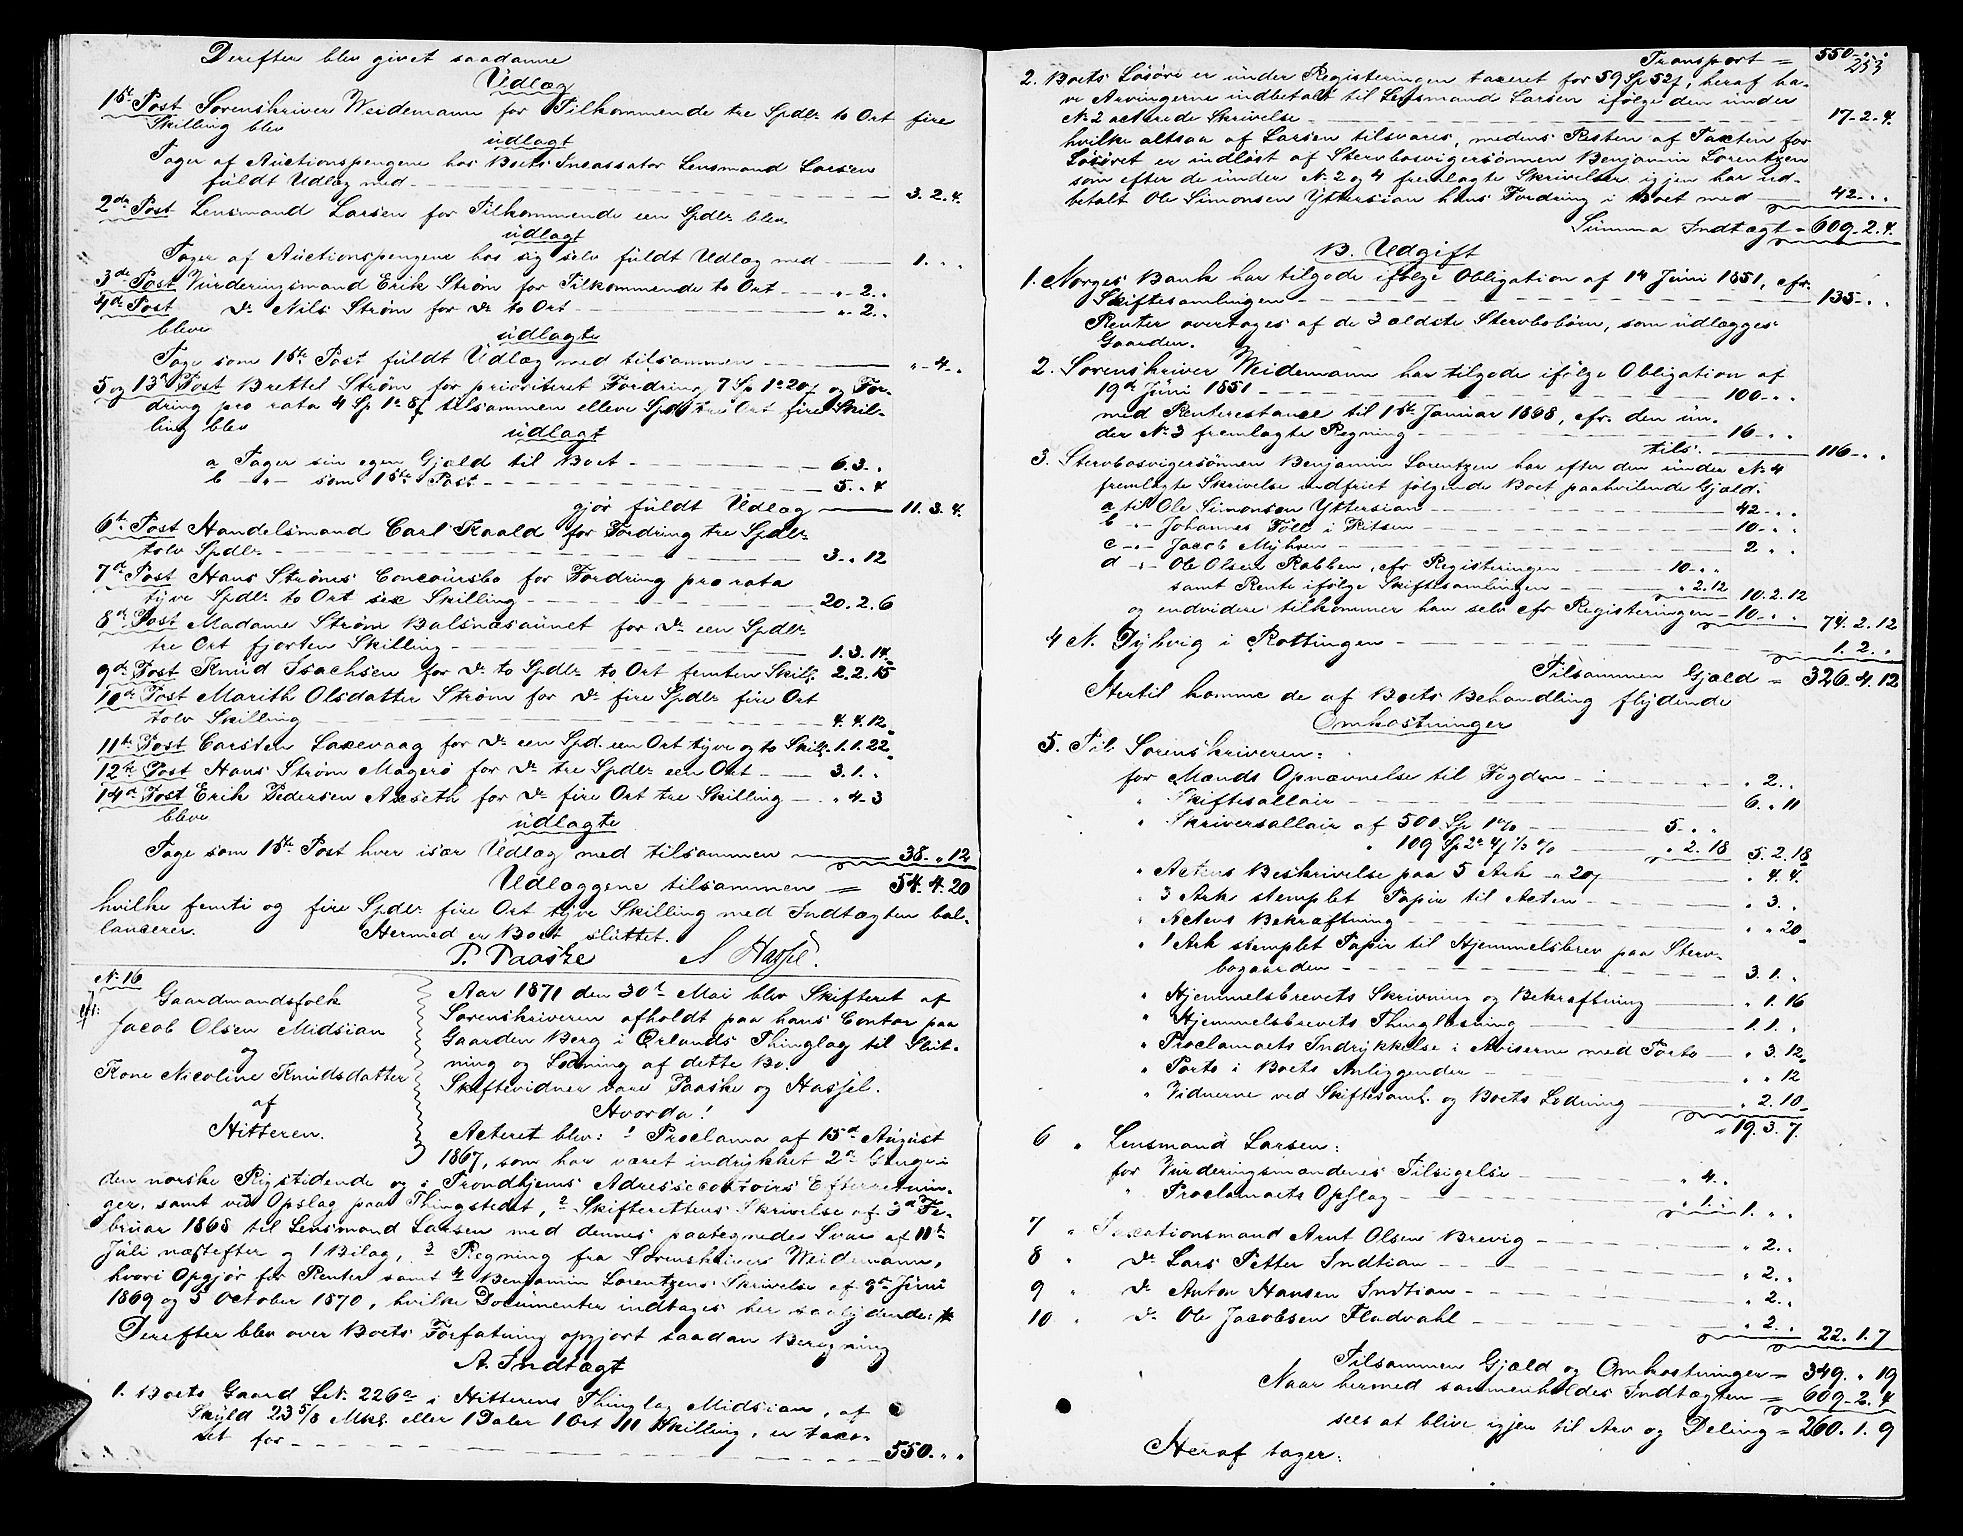 Derefter blev givet saadanne
Udlæg
1ste Post Sorenskriver Weidemann for Tilkommende tre Spdlr to Ort fire
Skilling blev
udlagt
Tager af Auctionspengene hos Boets Incassator Lensmand Larsen
fuldt Udlæg med 3.2.4.
2den Post Lensmand Larsen for Tilkommende een Spdlr blev
udlagt
Tager af Auctionspengene hos sig selv fuldt Udlæg med 1. " "
3de Post Vurderingsmand Erik Strøm for Tilkommende to Ort " 2. "
4de Post do Nils Strøm for do to Ort " 2. "
bleve
udlagte
Tage som 1ste Post fuldt Udlæg med tilsammen " 4. "
5 og 13de Post Brettel Strøm for prioriteret Fordring 7 Sp 1 20 og For-
dring pro rata 4 Sp 1 8 tilsammen elleve Spd tre Ort fire Skil-
ling blev
udlagt
a Tager sin egen Gjæld til Boet 6.3. "
b " som 1ste Post 5. " 4
gjør fuldt Udlæg 11.3.4.
6te Post Handelsmand Carl Kaald for Fordring tre Spdlr
tolv Spdlr 3. " 12
7de Post Hans Strøms Concoursbo for Fordring pro rata
tyve Spdlr to Ort sex Skilling 20.2.6
8de Post Madame Strøm Balsnæsaunet for do een Spdlr
tre Ort fjorten Skilling 1.3.14
9de Post Knud Isachsen for do to Spdlr to Ort femten Skill. 2.2.15
10de Post Marith Olsdatter Strøm for do fire Spdlr fire Ort
tolv Skilling 4.4.12
11te Post Carsten Laxevaag for do een Spd. een Ort tyve og to Skill. 1.1.22
12te Post Hans Strøm Magerö for do tre Spdlr een Ort 3.1. "
14de Post Erik Pedersen Axseth for do fire Ort tre Skilling " 4.3
bleve
udlagte
Tage som 1ste Post hver især Udlæg med tilsammen 38. " 12
Udlæggene tilsammen = 54.4.20
hvilke femti og fire Spdlr fire Ort tyve Skilling med Indtægten bal-
lancerer. Hermed er Boet sluttet.
P. Paaske A Hassel.
No 16
Gaardmandsfolk
Jacob Olsen Midsian
og
Kone Nicoline Knudsdatter
af
Hitteren.
Aar 1871 den 30te Mai blev Skifteret af
Sorenskriveren afholdt paa hans Contor paa
Gaarden Berg i Ørlands Thinglag til Slut-
ning og Lodning af dette Bo.
Skiftevidner vare Paaske og Hassel.
Hvorda!
Acteret blev: 1 Proclama af 15de August
1867, som har været indrykket 2de Gange i
den norske Rigstidende og i Trondhjems Adressecontoirs Efterretnin-
ger, samt ved Opslag paa Thingstedet, 2 Skifterettens Skrivelse af 3de Fe-
bruar 1868 til Lensmand Larsen med dennes paategnede Svar af 11te
Juli næstefter og 1 Bilag, 3 Regning fra Sorenskriver Weidemann,
hvori Opgjør for Renter samt 4 Benjamin Lorentzens Skrivelse af 9de Juni
1869 og 5 October 1870, hvilke Documenter indtages her saalydende:
Derefter blev over Boets Forfatning opgjort saadan Beregning
A. Indtægt
1. Boets Gaard LNo 226a i Hitterens Thinglag Midsian, af
Skyld 23 5/8 Mkl. eller 1 Daler 1 Ort 11 Skilling, er taxe-
ret for 550. " "
253
Transport = 550. " "
2. Boets Løsöre er under Registeringen taxeret for 59 Sp 52, heraf ha-
ve Arvingerne indbetalt til Lensmand Larsen ifølge den under
No 2 acterede Skrivelse 17.2.4.
hvilke altsaa af Larsen tilsvares, medens Resten af Taxten for
Løsöret er indløst af Stervbosvigersönnen Benjamin Lorentzen
som efter de under No 2 og 4 fremlagte Skrivelser igjen har ud-
betalt Ole Simonsen Yttersian hans Fordring i Boet med 42. " "
Summa Indtægt = 609.2.4.
B. Udgift
1. Norges Bank har tilgode ifølge Obligation af 14 Juni 1851, cfr.
Skiftesamlingen 135. " "
Renter overtages af de 3 ældste Stervbobörn, som udlægges
Gaarden.
2. Sorenskriver Weidemann har tilgode ifølge Obligation af
19de Juni 1851 100. " "
med Renterestance til 1ste Januar 1868, cfr. den un-
der No 3 fremlagte Regning 16. " "
tils. 116. " "
3. Stervbosvigersönnen Benjamin Lorentzen har efter den under No 4
fremlagte Skrivelse indfriet følgende Boet paahvilende Gjæld:
a til Ole Simonsen Yttersian 42. " "
b " Johannes Föll i Fitsen 10. " "
c " Jacob Myhren 2. " "
d " Ole Olsen Rabben, cfr Registeringen 10. " "
samt Rente ifølge Skiftesamlingen " 2.12 10.2.12
og endvidere tilkommer han selv cfr Registeringen 10. " " 74.2.12
4 N. Dyhvig i Rottingen 1.2. "
Tilsammen Gjæld = 326.4.12
Hertil komme de af Boets Behandling flydende
Omkostninger
5. Til Sorenskriveren:
for Mænds Opnævnelse til Fogden " 2. "
" Skiftesallair 6. " 11
" Skriversallair af 500 Sp 1% 5. " "
" 109 Sp 2 4 ½ % " 2.18 5.2.18
" Actens Beskrivelse paa 5 Ark " 20 " 4.4.
" 3 Ark stemplet Papir til Acten " 3. "
" Actens Bekræftning " " 20
" 1 Ark stemplet Papir til Hjemmelsbrev paa Sterv-
bogaarden 3.1. "
" Hjemmelsbrevets Skrivning og Bekræftning " 1.16
" Hjemmelsbrevets Thinglæsning 1.1. "
" Proclamaets Indrykkelse i Aviserne med Porto " 3.12
" Porto i Boets Anliggender " " 12
" Vidnerne ved Skiftesaml. og Boets Lodning " 2.10
19.3.7.
6 " Lensmand Larsen:
for Vurderingsmændenes Tilsigelse " 4. "
" Proclamaets Opslag " 1. " 1. " "
7 " Taxationsmand Arnt Olsen Brevig " 2. "
8 " do Lars Petter Indtian " 2. "
9 " do Anton Hansen Indtian " 2. "
10 " do Ole Jacobsen Fladvahl " 2. " 22.1.7
Tilsammen Gjæld og Omkostninger = 349. " 19
Naar hermed sammenholdes Indtægten = 609.2.4
sees at blive igjen til Arv og Deling = 260.1.9
Heraf tager: